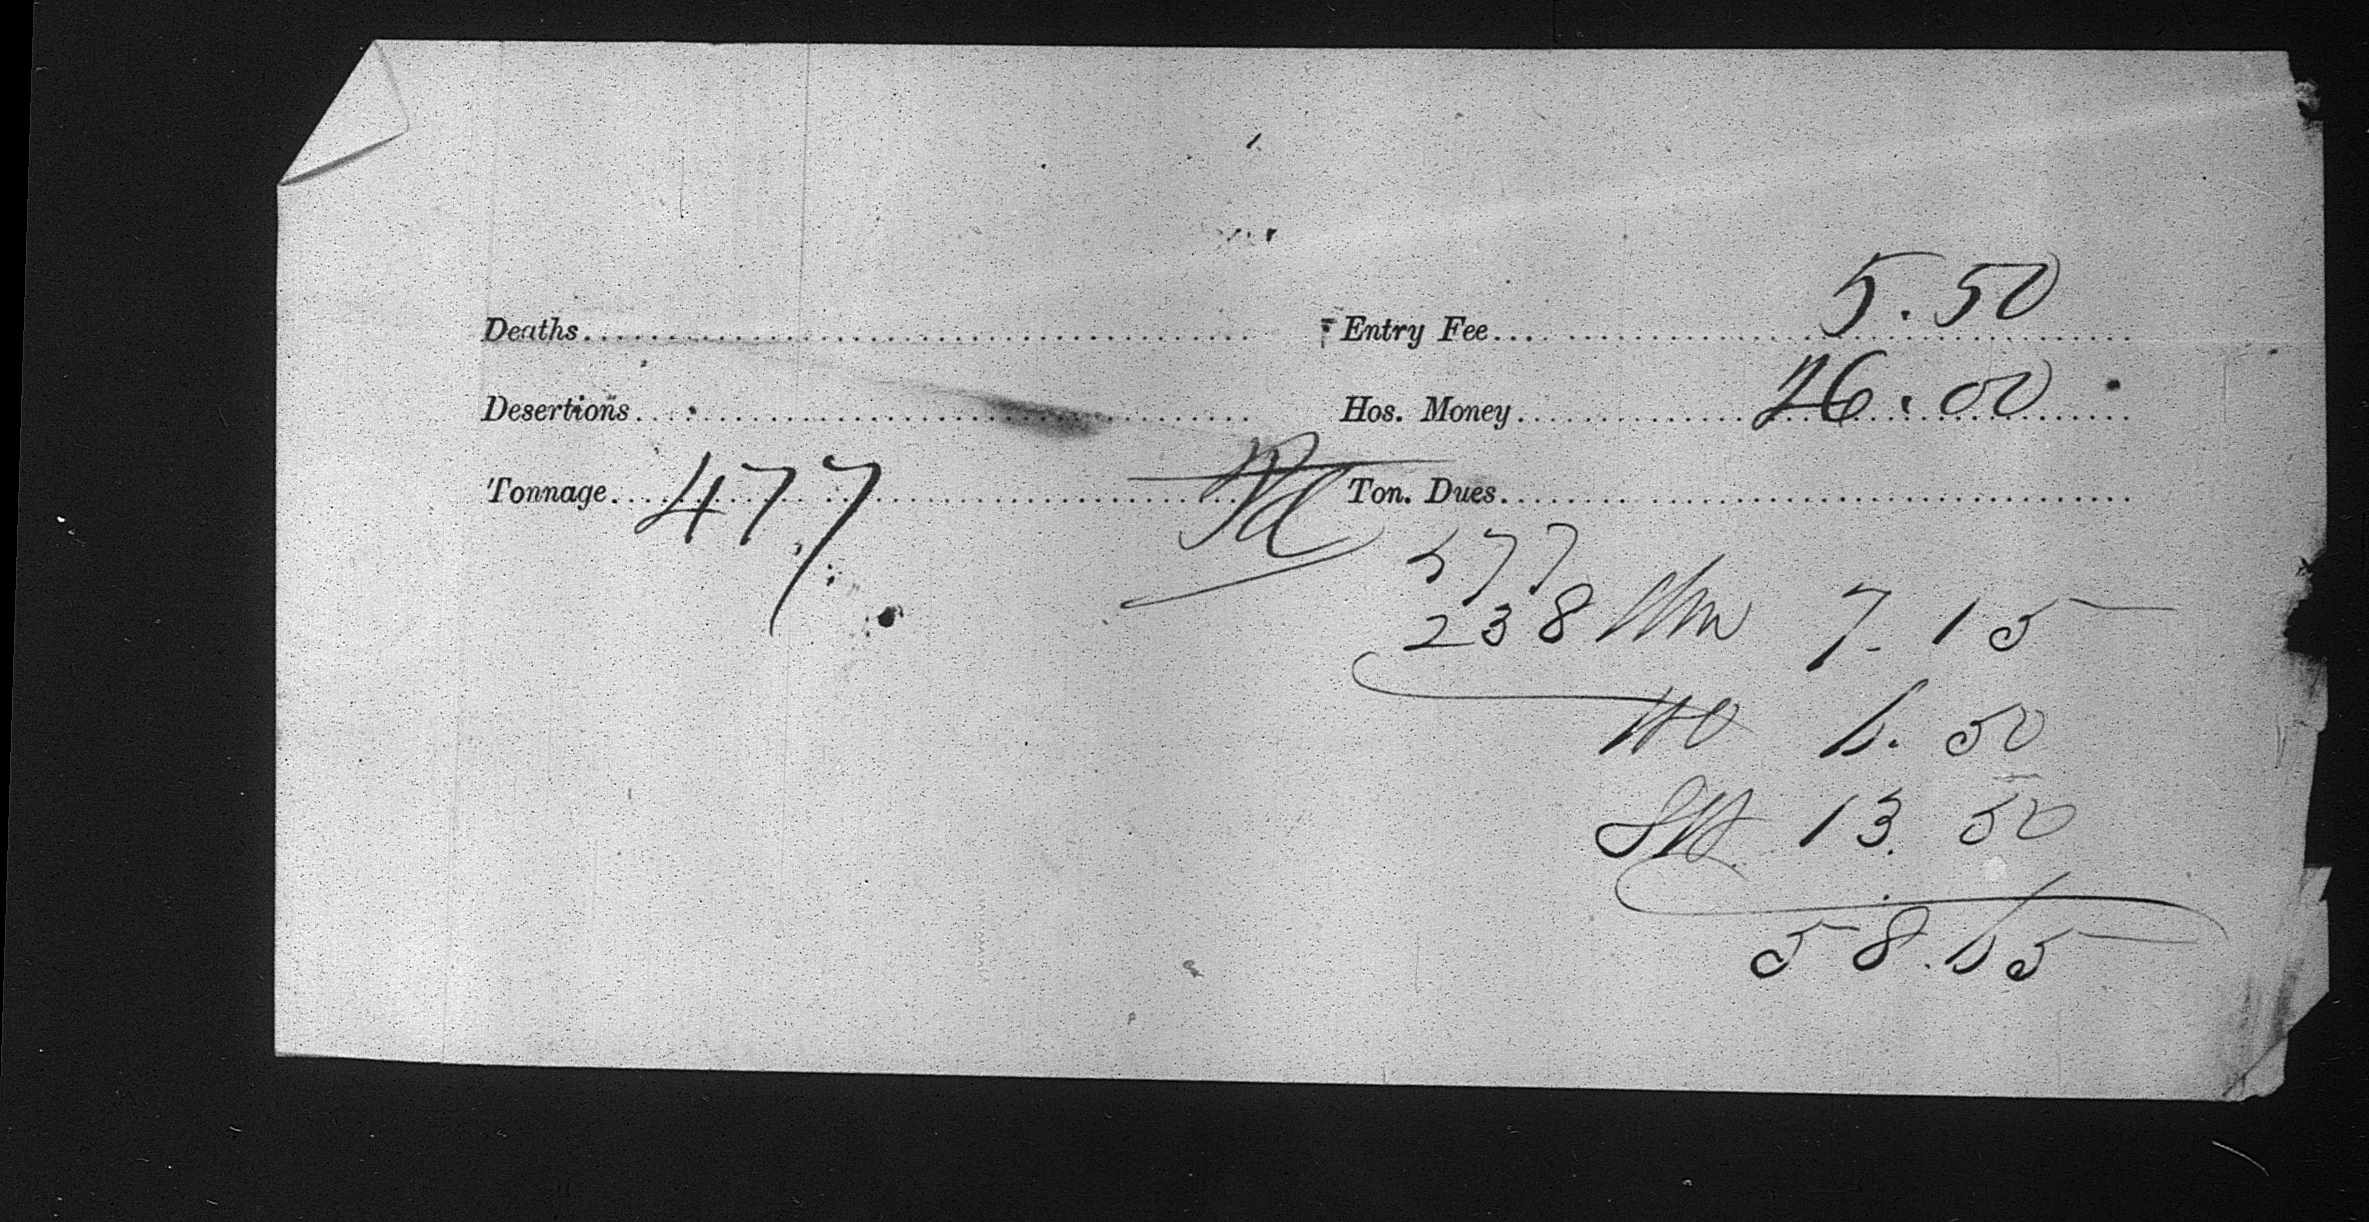 Deaths
Entry Fee 5.50
Desertions
Hos. Money 26.00
Tonnage 477
Pd
Ton. Dues
477
238 7.15
6.50
13.50
58.65